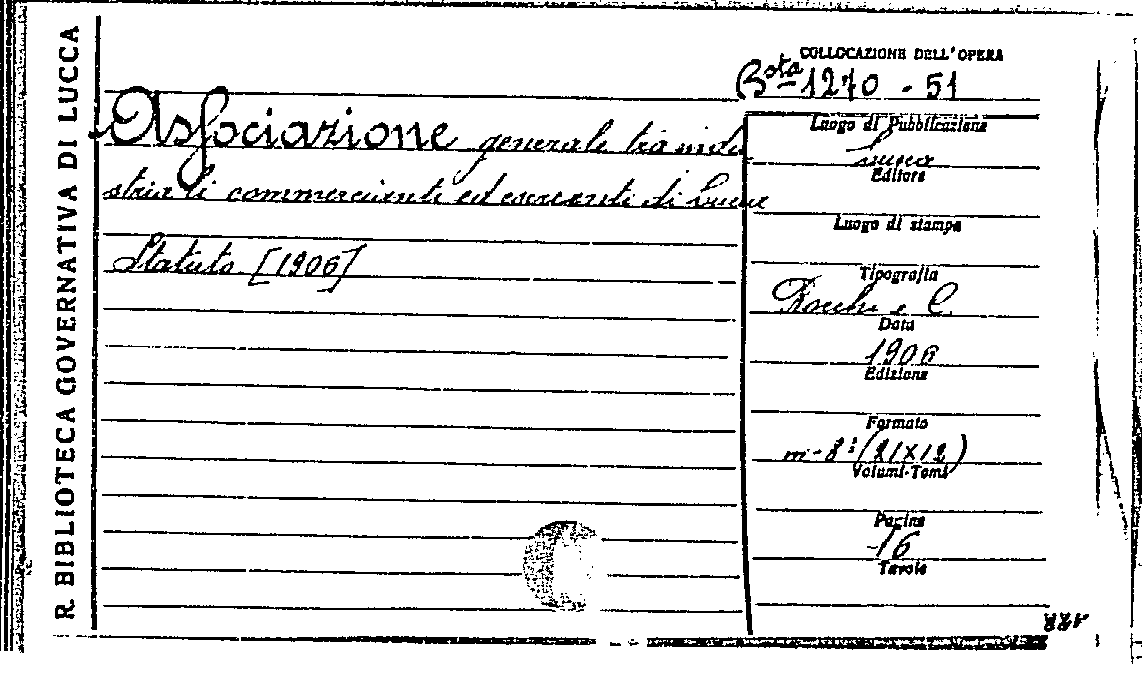 R. BIBLIOTECA GOVERNATIVA DI LUCCA
COLLOCAZIONE DELL'OPERA
Bsta 1270 - 51
Associazione generale tra indu
striali commercianti ed esercenti di Lucca
Statuto [1906]
Luogo di Pubblicazione
Lucca
Editore
Luogo di stampa
Tipografia
Rocchi e C.
Data
1906
Edizione
Formato
in-8° (21X12)
Volumi-Tomi
Pagine
16
Tavole